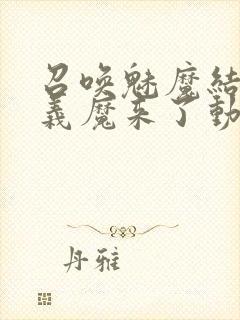 召唤魅魔结
義魔来了動
丹雅